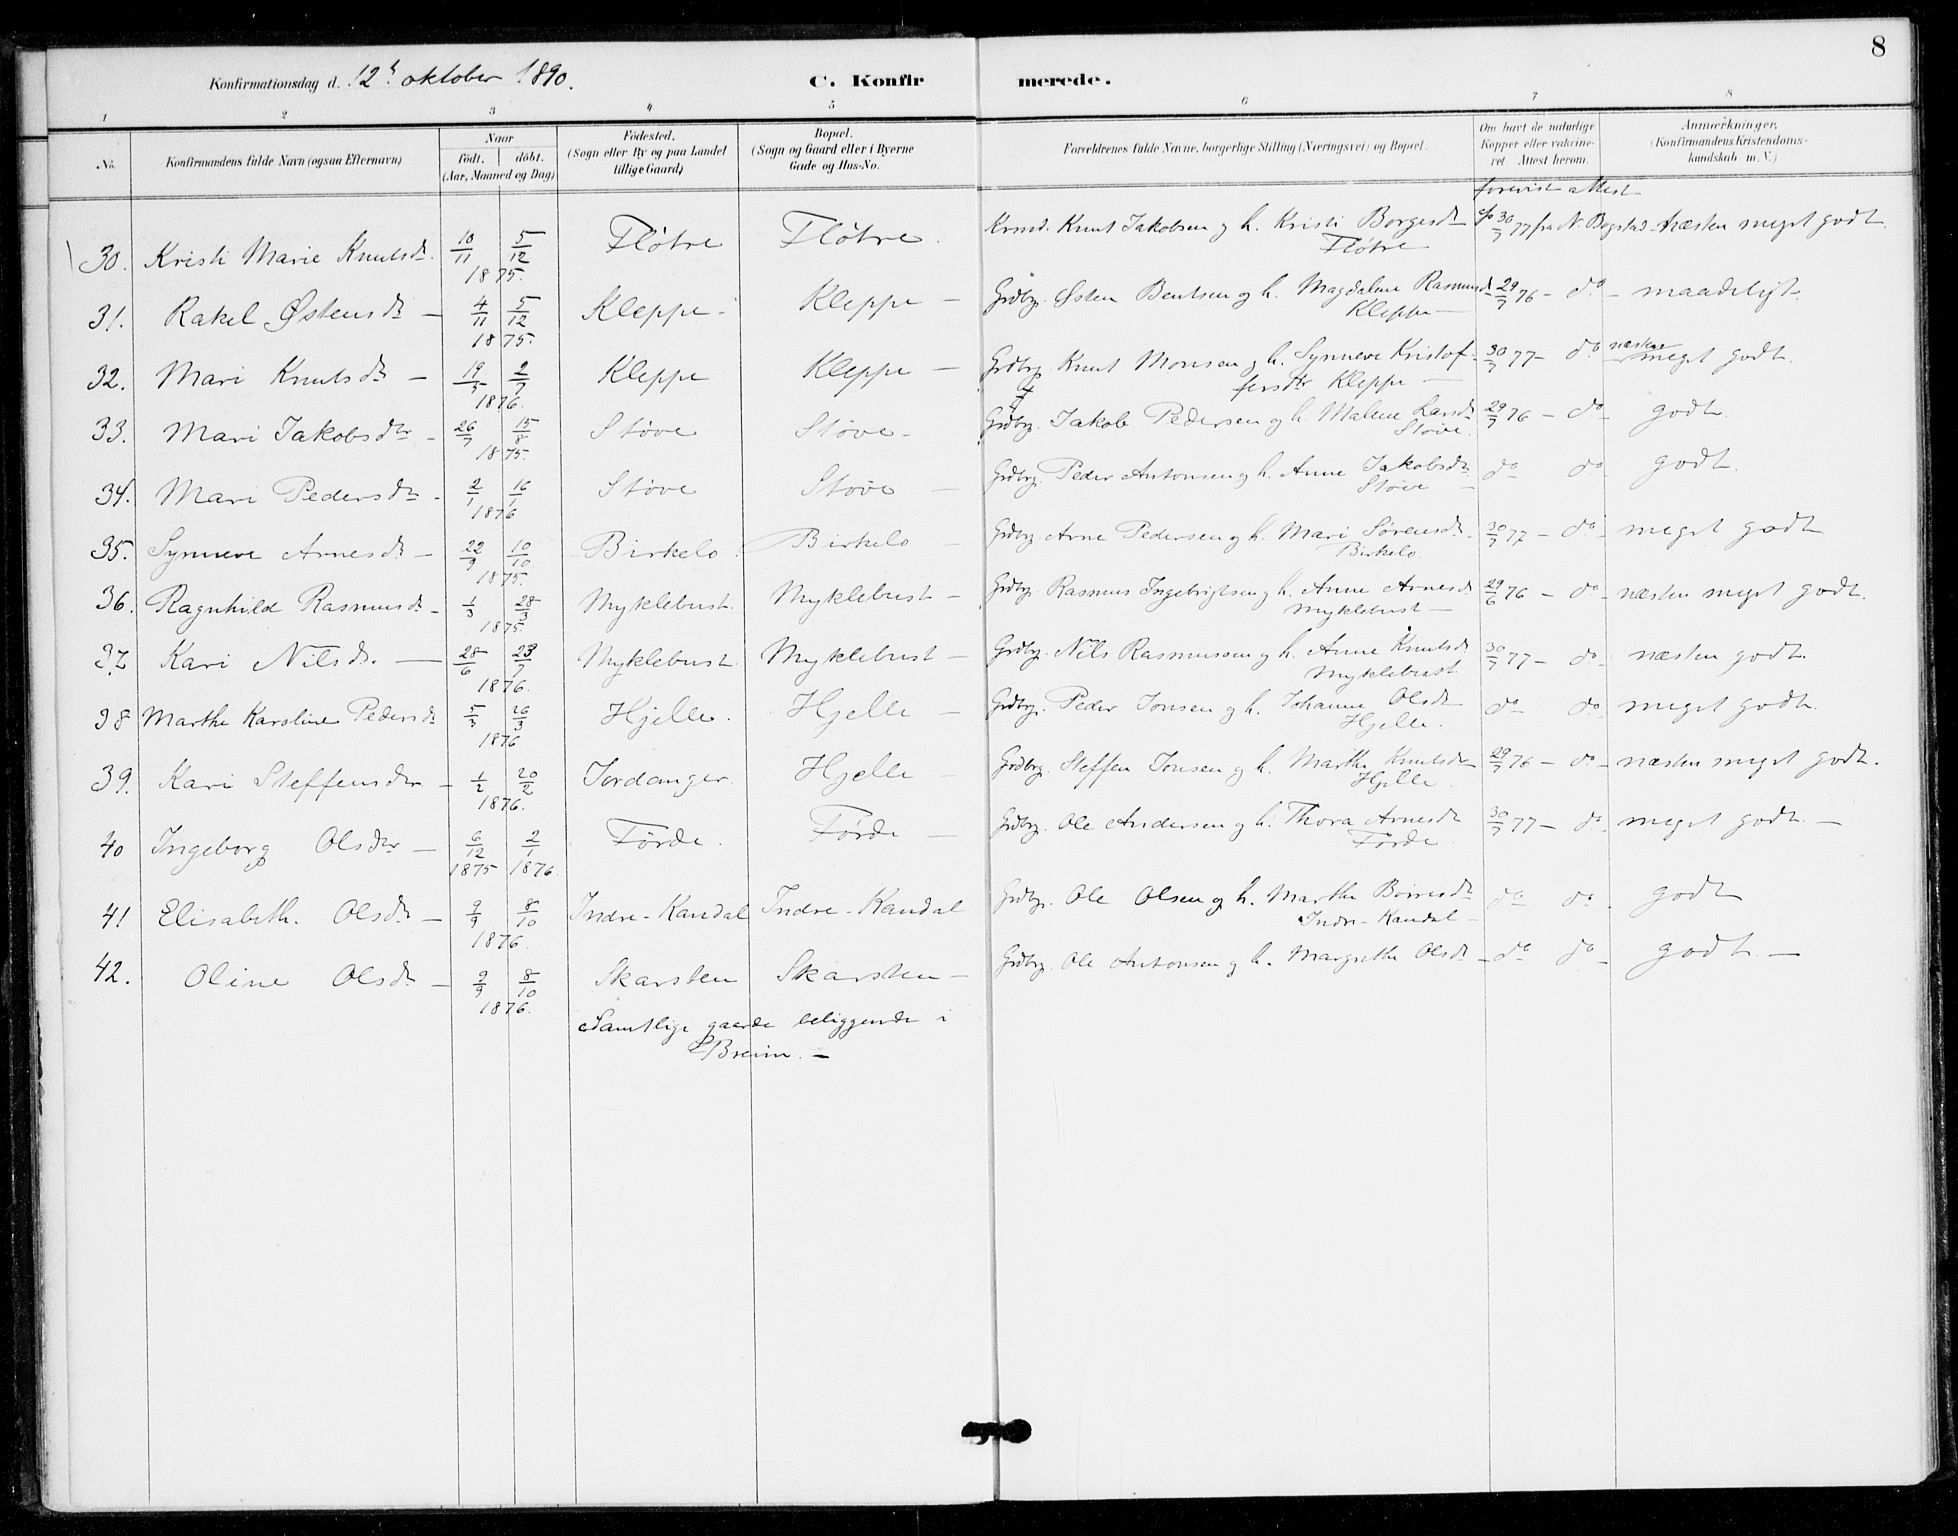 8
Konfirmationsdag d. 12te oktober 1890. C. Konfirmerede.
1 2 3 4 5 6 7 8
No. Konfirmandens fulde Navn (ogsaa Efternavn) Naar født. døbt. (Aar, Maaned og Dag) Fødested. (Sogn eller By og paa Landet tillige Gaard) Bopæl. (Sogn og Gaard eller i Byerne Gade og Hus-No. Forældrenes fulde Navne, borgerlige Stilling (Næringsvei) og Bopæl. Om havt de naturlige Kopper eller vaccineret. Attest herom. Anmærkninger. (Konfirmandens Kristendomskundskab m. V.)
forevist attest
30. Kristi Marie Knutsdr. 10/11 5/12 1875. Fløtre Fløtre. Krmd. Knut Jakobsen og h. Kristi Børgesdr Fløtre 30/7 77 fra N. Bogstad - næsten meget godt.
31. Rakel Østensdr - 4/11 5/12 1875. Kleppe - Kleppe - Grdbrg. Østen Bentsen og h. Magdalene Rasmusdr Kleppe - 29/7 76 - do - maadeligt.
32. Mari Knutsdr - 19/5 2/7 1876. Kleppe Kleppe - Grdbrg. Knut Monsen og h. Synneve Kristoffersdtr Kleppe - 30/7 77 - do næsten meget godt.
33. Mari Jakobsdtr - 26/7 15/8 1875. Støve Støve - Grdbrg. Jakob Pedersen og h. Malene Larsdr Støve. 29/7 76 - do godt.
34. Mari Pedersdtr - 2/1 16/1 1876 Støve Støve - Grdbrg. Peder Antonsen og h. Anne Jakobsdr Støve - do do godt.
35. Synneve Arnesdr - 22/9 10/10 1875. Birkelo Birkelo - Grdbrg. Arne Pedersen og h. Mari Sørensdr. Birkelo. 30/7 77 - do - meget godt
36. Ragnhild Rasmusdr - 1/3 28/3 1875. Myklebust. Myklebust - Grdbrg. Rasmus Ingebrigtsen og h. Anne Arnesdr Myklebust - 29/6 76 - do - næsten meget godt.
37. Kari Nilsdr. - 28/6 23/7 1876. Myklebust. Myklebust - Grdbrg. Nils Rasmussen og h. Anne Knutsdr Myklebust 30/7 77 - do - næsten godt.
38 Marthe Karoline Pedersdr 5/3 26/3 1876 Hjelle. Hjelle - Grdbrg. Peder Jonsen og h. Johanne Olsdr Hjelle. do do - meget godt.
39. Kari Steffensdtr - 1/2 20/2 1876. Jordanger. Hjelle - Grdbrg. Steffen Jonsen og h. Marthe Knutsdr Hjelle. 29/7 76 - do - næsten meget godt.
40 Ingeborg Olsdtr - 6/12 1875 2/1 1876. Førde. Førde - Grdbrg. Ole Andersen og h. Thora Arnesdr Førde 30/7 77 - do - meget godt. -
41 Elisabeth. Olsdr - 9/9 8/10 1876. Indre-Kandal Indre-Kandal Grdbrg. Ole Olsen og h. Marthe Børresdr Indre-Kandal - do do godt
42. Oline Olsdr - 9/9 8/10 1876. Skarsten Skarsten - Grdbrg. Ole Antonsen og h. Margrethe Olsdr - do do - godt. -
Samtlige gaarde beliggende i
Breim. -